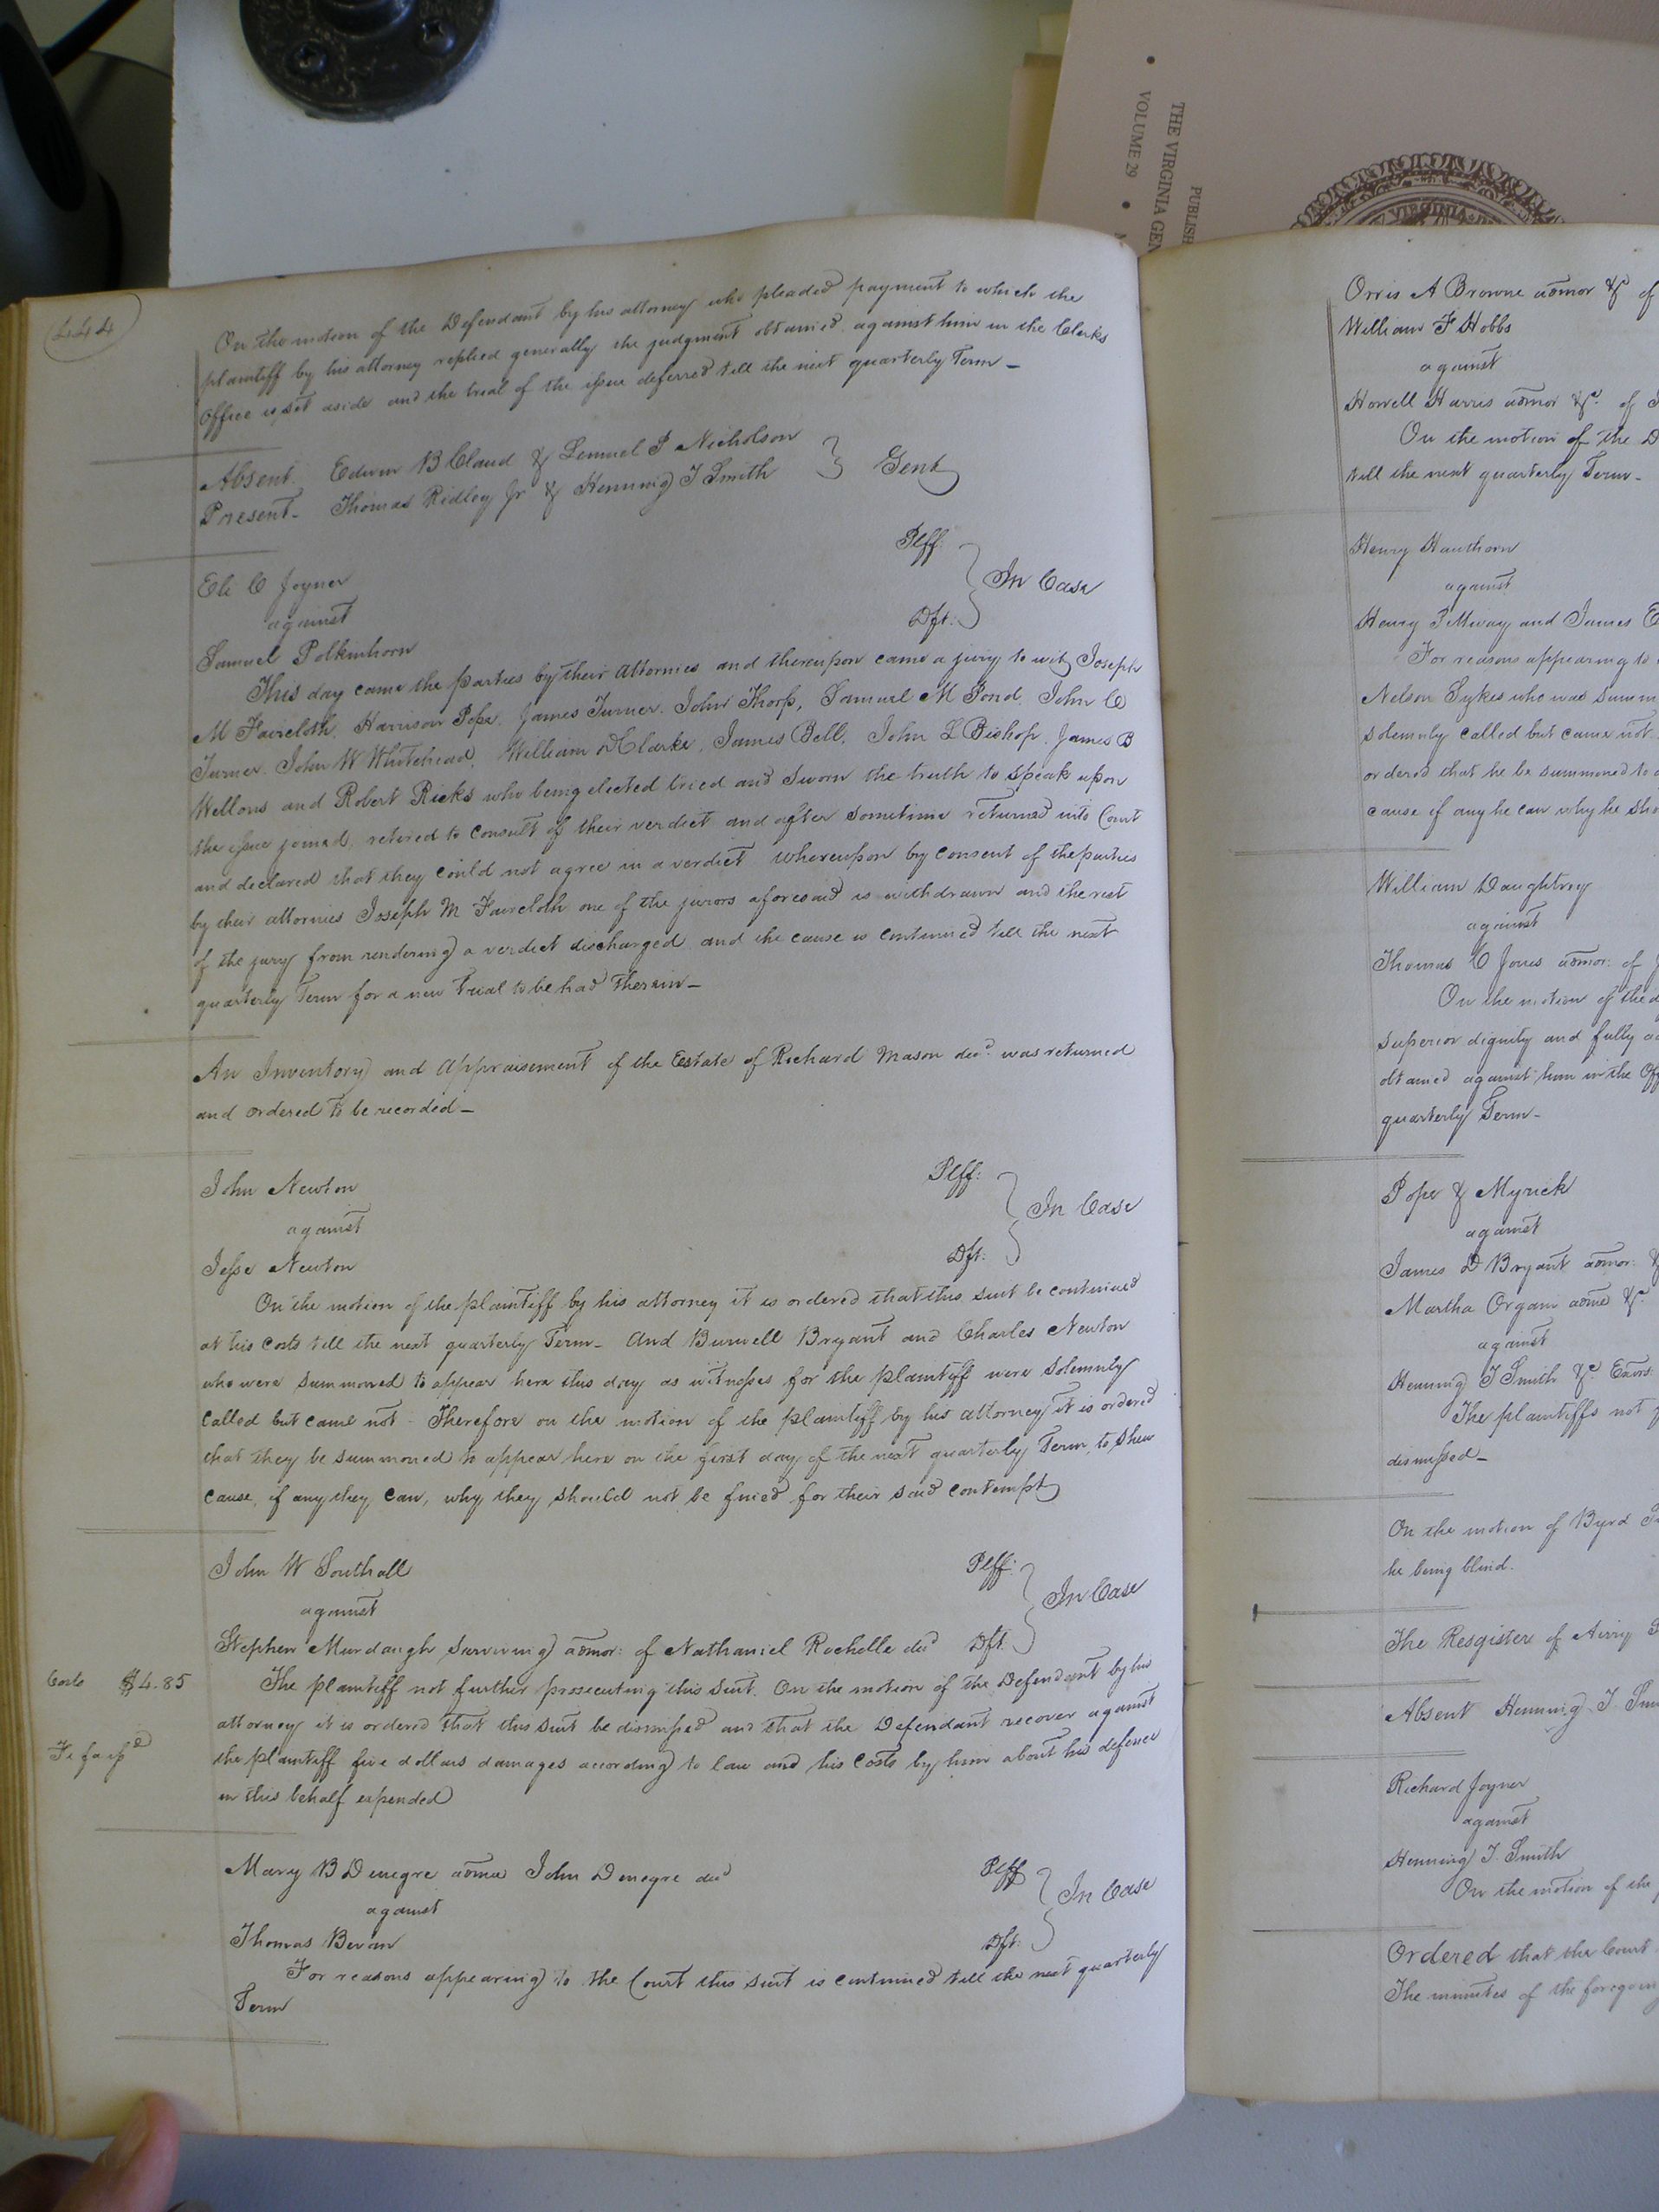 THE VIRGINIA GEN
VOLUME 29
PUBLISH
VIRGINIA
444
On the motion of the Defendant by his attorney who pleaded payment to which the
plaintiff by his attorney replied generally the judgment obtained against him in the Clerks
Office is set aside and the trial of the issue deferred till the next quarterly Term -
Absent. Edwin B Claud & Lemuel P Nicholson
Present - Thomas Ridley Jr & Henning T Smith } Gent
Eli C Joyner Plff.
against } In Case
Samuel Polkinhorn Dft.
This day came the parties by their attornies and thereupon came a jury to wit, Joseph
M Faircloth, Harrison Pope, James Turner, John Thorp, Samuel M Pond, John C
Turner, John W Whitehead, William D Clarke, James Bell, John L Bishop, James B
Wellons and Robert Ricks who being elected tried and sworn the truth to speak upon
the issue joined, retired to consult of their verdict and after sometime returned into Court
and declared that they could not agree in a verdict. Whereupon by consent of the parties
by their attornies Joseph M Faircloth one of the jurors aforesaid is withdrawn and the rest
of the jury from rendering a verdict discharged and the cause is continued till the next
quarterly Term for a new trial to be had therein -
An Inventory and appraisement of the Estate of Richard Mason decd. was returned
and ordered to be recorded -
John Newton Plff:
against } In Case
Jesse Newton Dft:
On the motion of the plaintiff by his attorney it is ordered that this suit be continued
at his costs till the next quarterly Term - And Burwell Bryant and Charles Newton
who were summoned to appear here this day as witnesses for the plaintiff were solemnly
called but came not - Therefore on the motion of the plaintiff by his attorney it is ordered
that they be summoned to appear here on the first day of the next quarterly Term, to shew
cause, if any they can, why they should not be fined for their said contempt
John W Southall Plff:
against } In Case
Stephen Murdaugh surviving admor: of Nathaniel Rochelle decd Dft.
Costs $4.85 The plaintiff not further prosecuting this suit. On the motion of the Defendant by his
attorney it is ordered that this suit be dismissed and that the Defendant recover against
Fi fa issd the plaintiff five dollars damages according to law and his costs by him about his defence
in this behalf expended
Mary B Denegre admx John Denegre decd Plff
against } In Case
Thomas Bevan Dft:
For reasons appearing to the Court this suit is continued till the next quarterly
Term
Orris A Browne admor &c of
William F Hobbs
against
Howell Harris admor &c. of
On the motion of the D
till the next quarterly Term -
Henry Hawthorn
against
Henry Pettway and James
For reasons appearing to
Nelson Sykes who was summ
solemnly called but came not
ordered that he be summoned to
cause if any he can why he sho
William Daughtry
against
Thomas C Jones admor: of
On the motion of the d
superior dignity and fully
obtained against him in the Off
quarterly Term -
Pope & Myrick
against
James D Bryant admor: &
Martha Organ admx &c.
against
Henning T Smith &c Exors
The plaintiffs not
dismissed -
On the motion of Byrd
he being blind.
The Resgister of
Absent Henning T. Smi
Richard Joyner
against
Henning T. Smith
On the motion of the
Ordered that the Court
The minutes of the foregoing